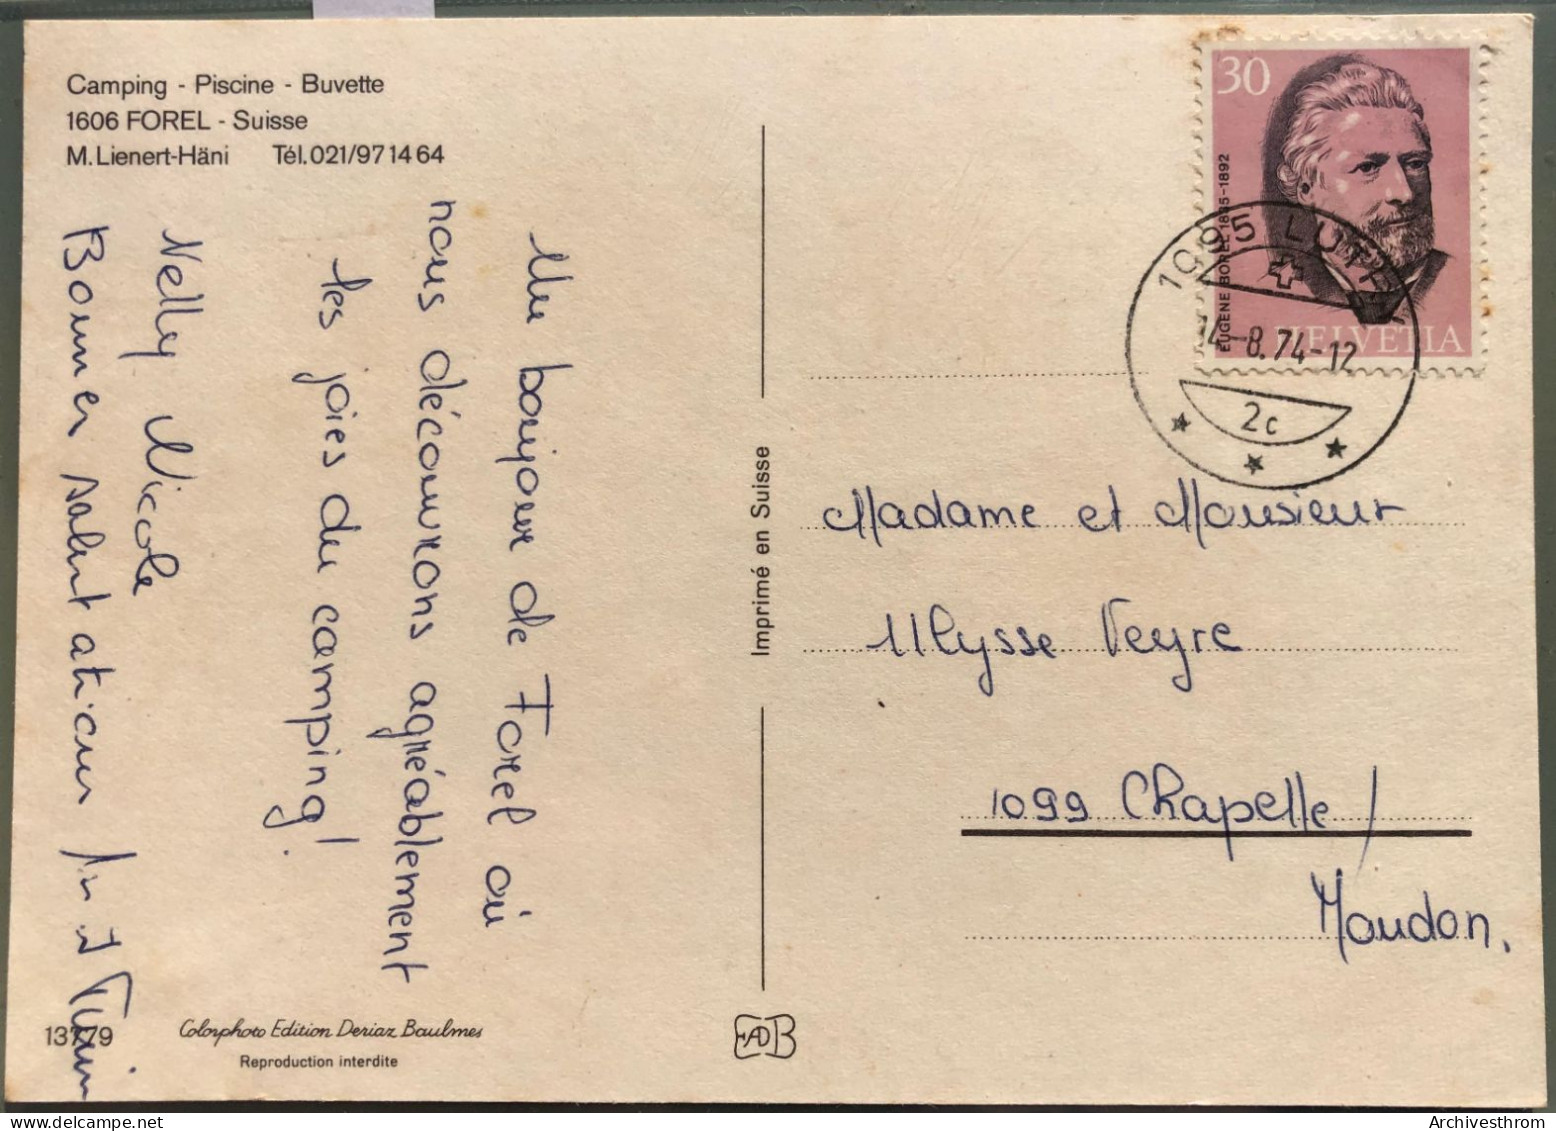 Camping - Piscine - Buvette
1606 FOREL - Suisse
M. Lienert-Häni Tél. 021/97 14 64
Un bonjour de Forel où
nous découvrons agréablement
les joies du camping!
Nelly Nicole
Bonnes salutations
13779
Colorphoto Edition Deriaz Baulmes
Reproduction interdite
Imprimé en Suisse
EADB
30
EUGÈNE BOREL 1835-1892
HELVETIA
1095 LUTRY
14-8.74-12
2c
Madame et Monsieur
Ulysse Veyre
1099 Chapelle/
Moudon.
Archivesthrom